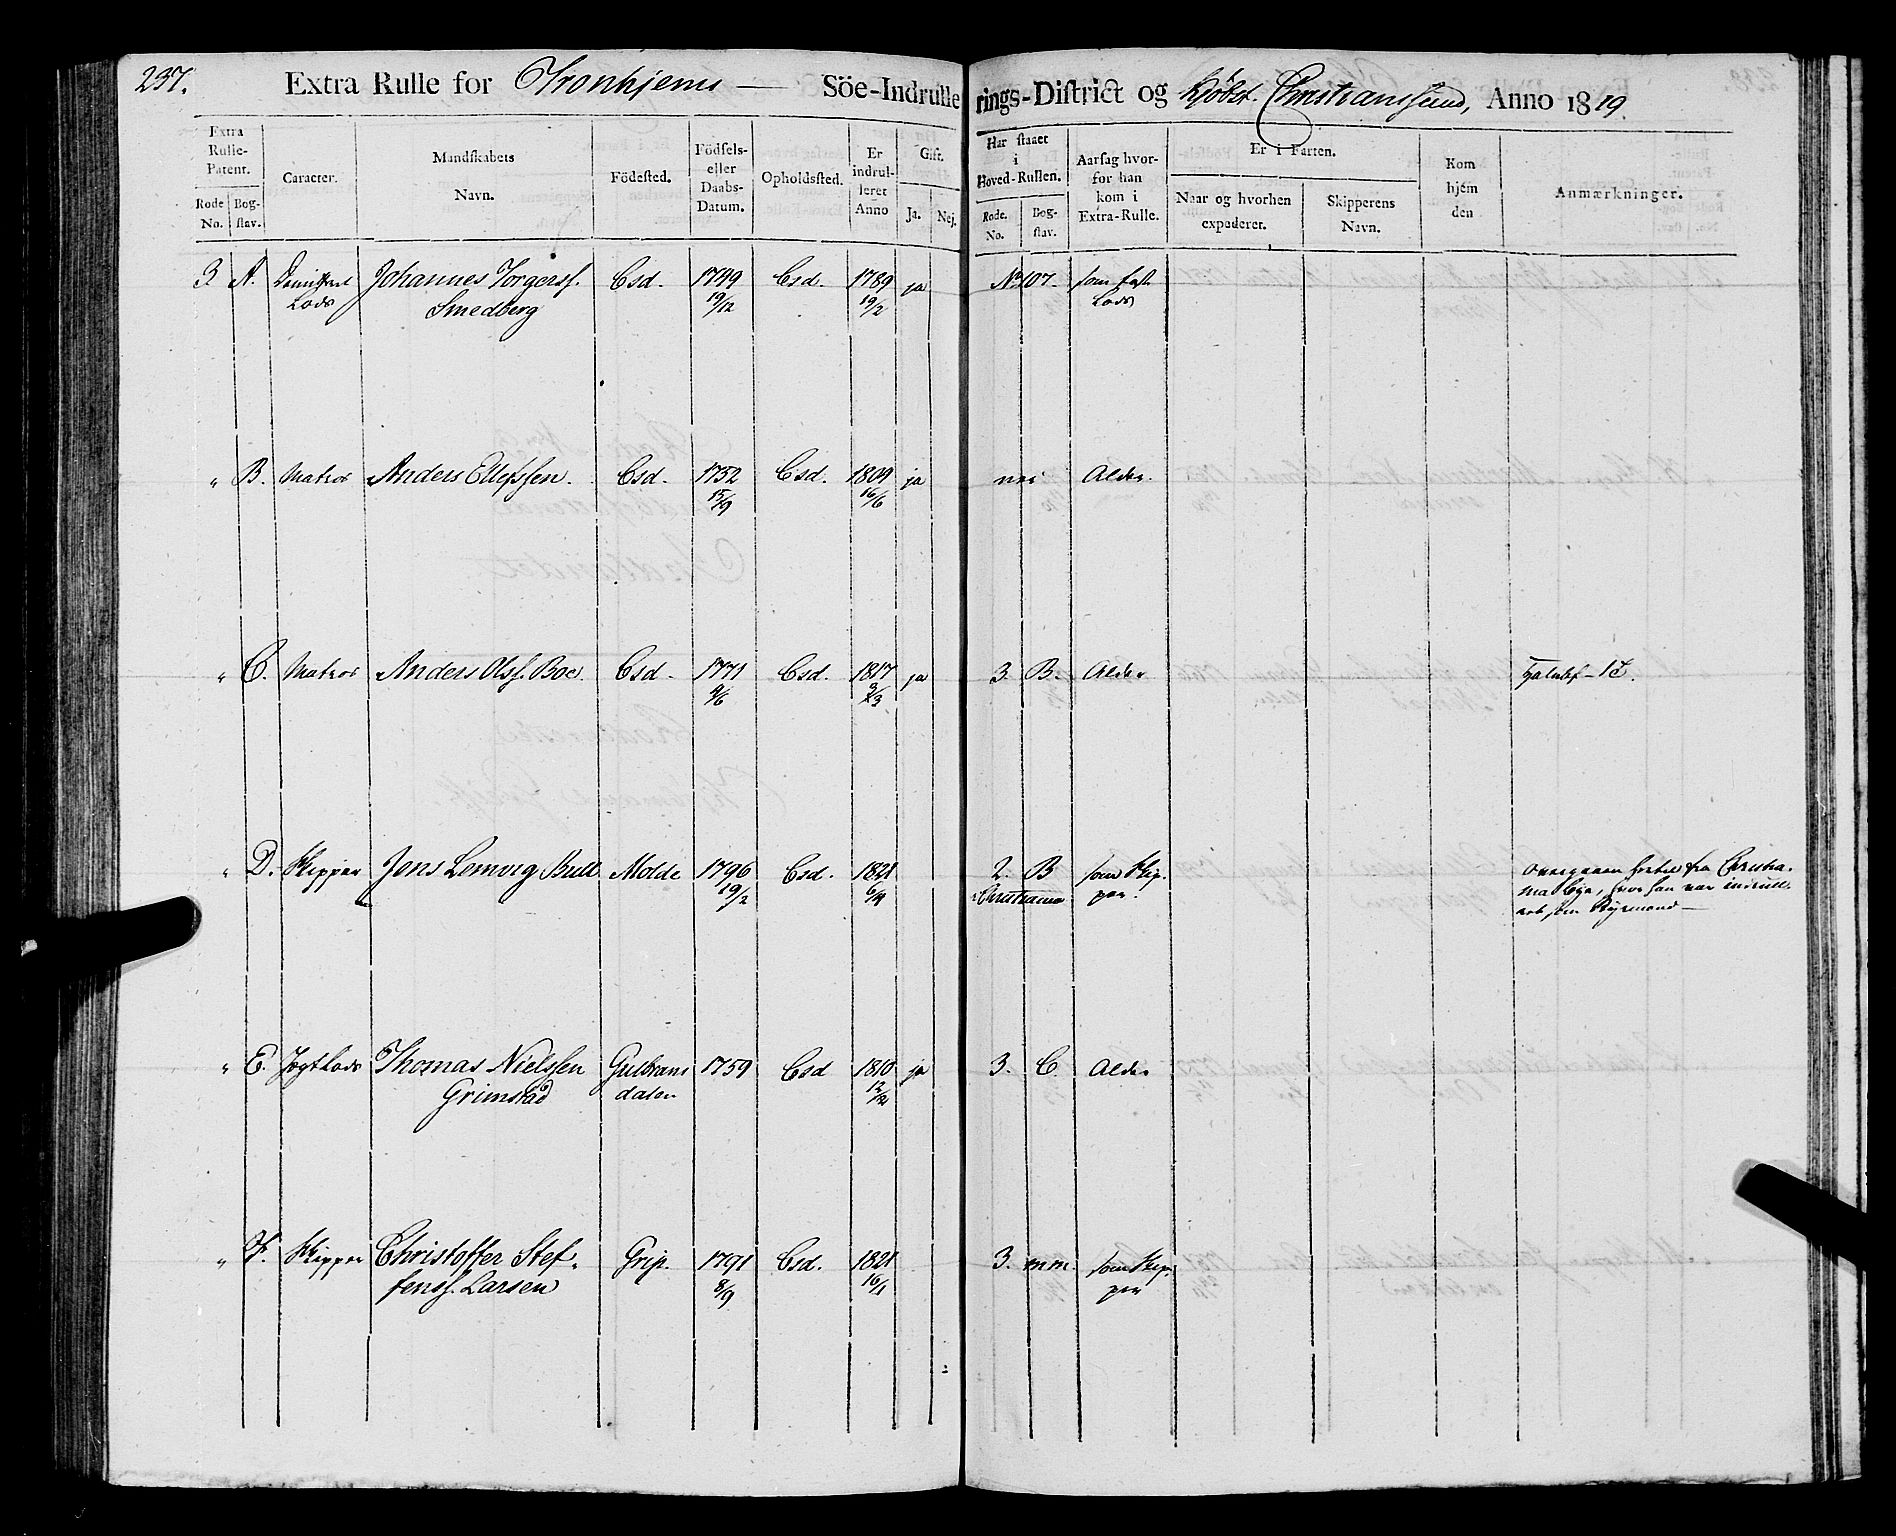 237.
Extra Rulle for Tronhjems — Söe-Indrullerings-District og Kjöbst. Christianssund, Anno 1819.
Extra Rulle-Patent.
Rode No.
Bog-stav.
Caracter.
Mandskabets Navn.
Födested.
Födsels- eller Daabs-Datum.
Opholdssted.
Er indrul-leret Anno
Gift.
Ja.
Nej.
Har staaet i Hoved-Rullen.
Rode. No.
Bog-stav.
Aarsag hvor-for han kom i Extra-Rulle.
Er i Farten.
Naar og hvorhen expederet.
Skipperens Navn.
Kom hjem den
Anmærkninger.
3 A. Johannes Torgersf. Csd. 1749 Csd. 1789 ja No 107. som fast
Lods Smedberg 19/12 19/2 Lods
" B. Matros Anders Ellefssen. Csd. 1752 Csd. 1809 ja nei Alder.
15/9 16/6
" C. Matros Anders Olsf. Boe. Csd. 1771 Csd. 1817 ja 3. B. Alder
9/6
" D. Skipper Jens Lemvig Bull Molde 1796 Csd. 1821 2. B som Skip- overgaaen hertil fra Christia-
19/2 i Christiania per. nia Bye, hvor han var indrull-
eret som Styrmand —
" E. Jagt Lods Thomas Nielssen Gulbrans 1759 Csd 1810 ja 3. C. Alder
Grimstad dalen 12/12
" F. Skipper Christoffer Stef- Grip. 1791 Csd. 1821 3. mm. som Skip-
fensf. Larsen 8/9 16/1 per